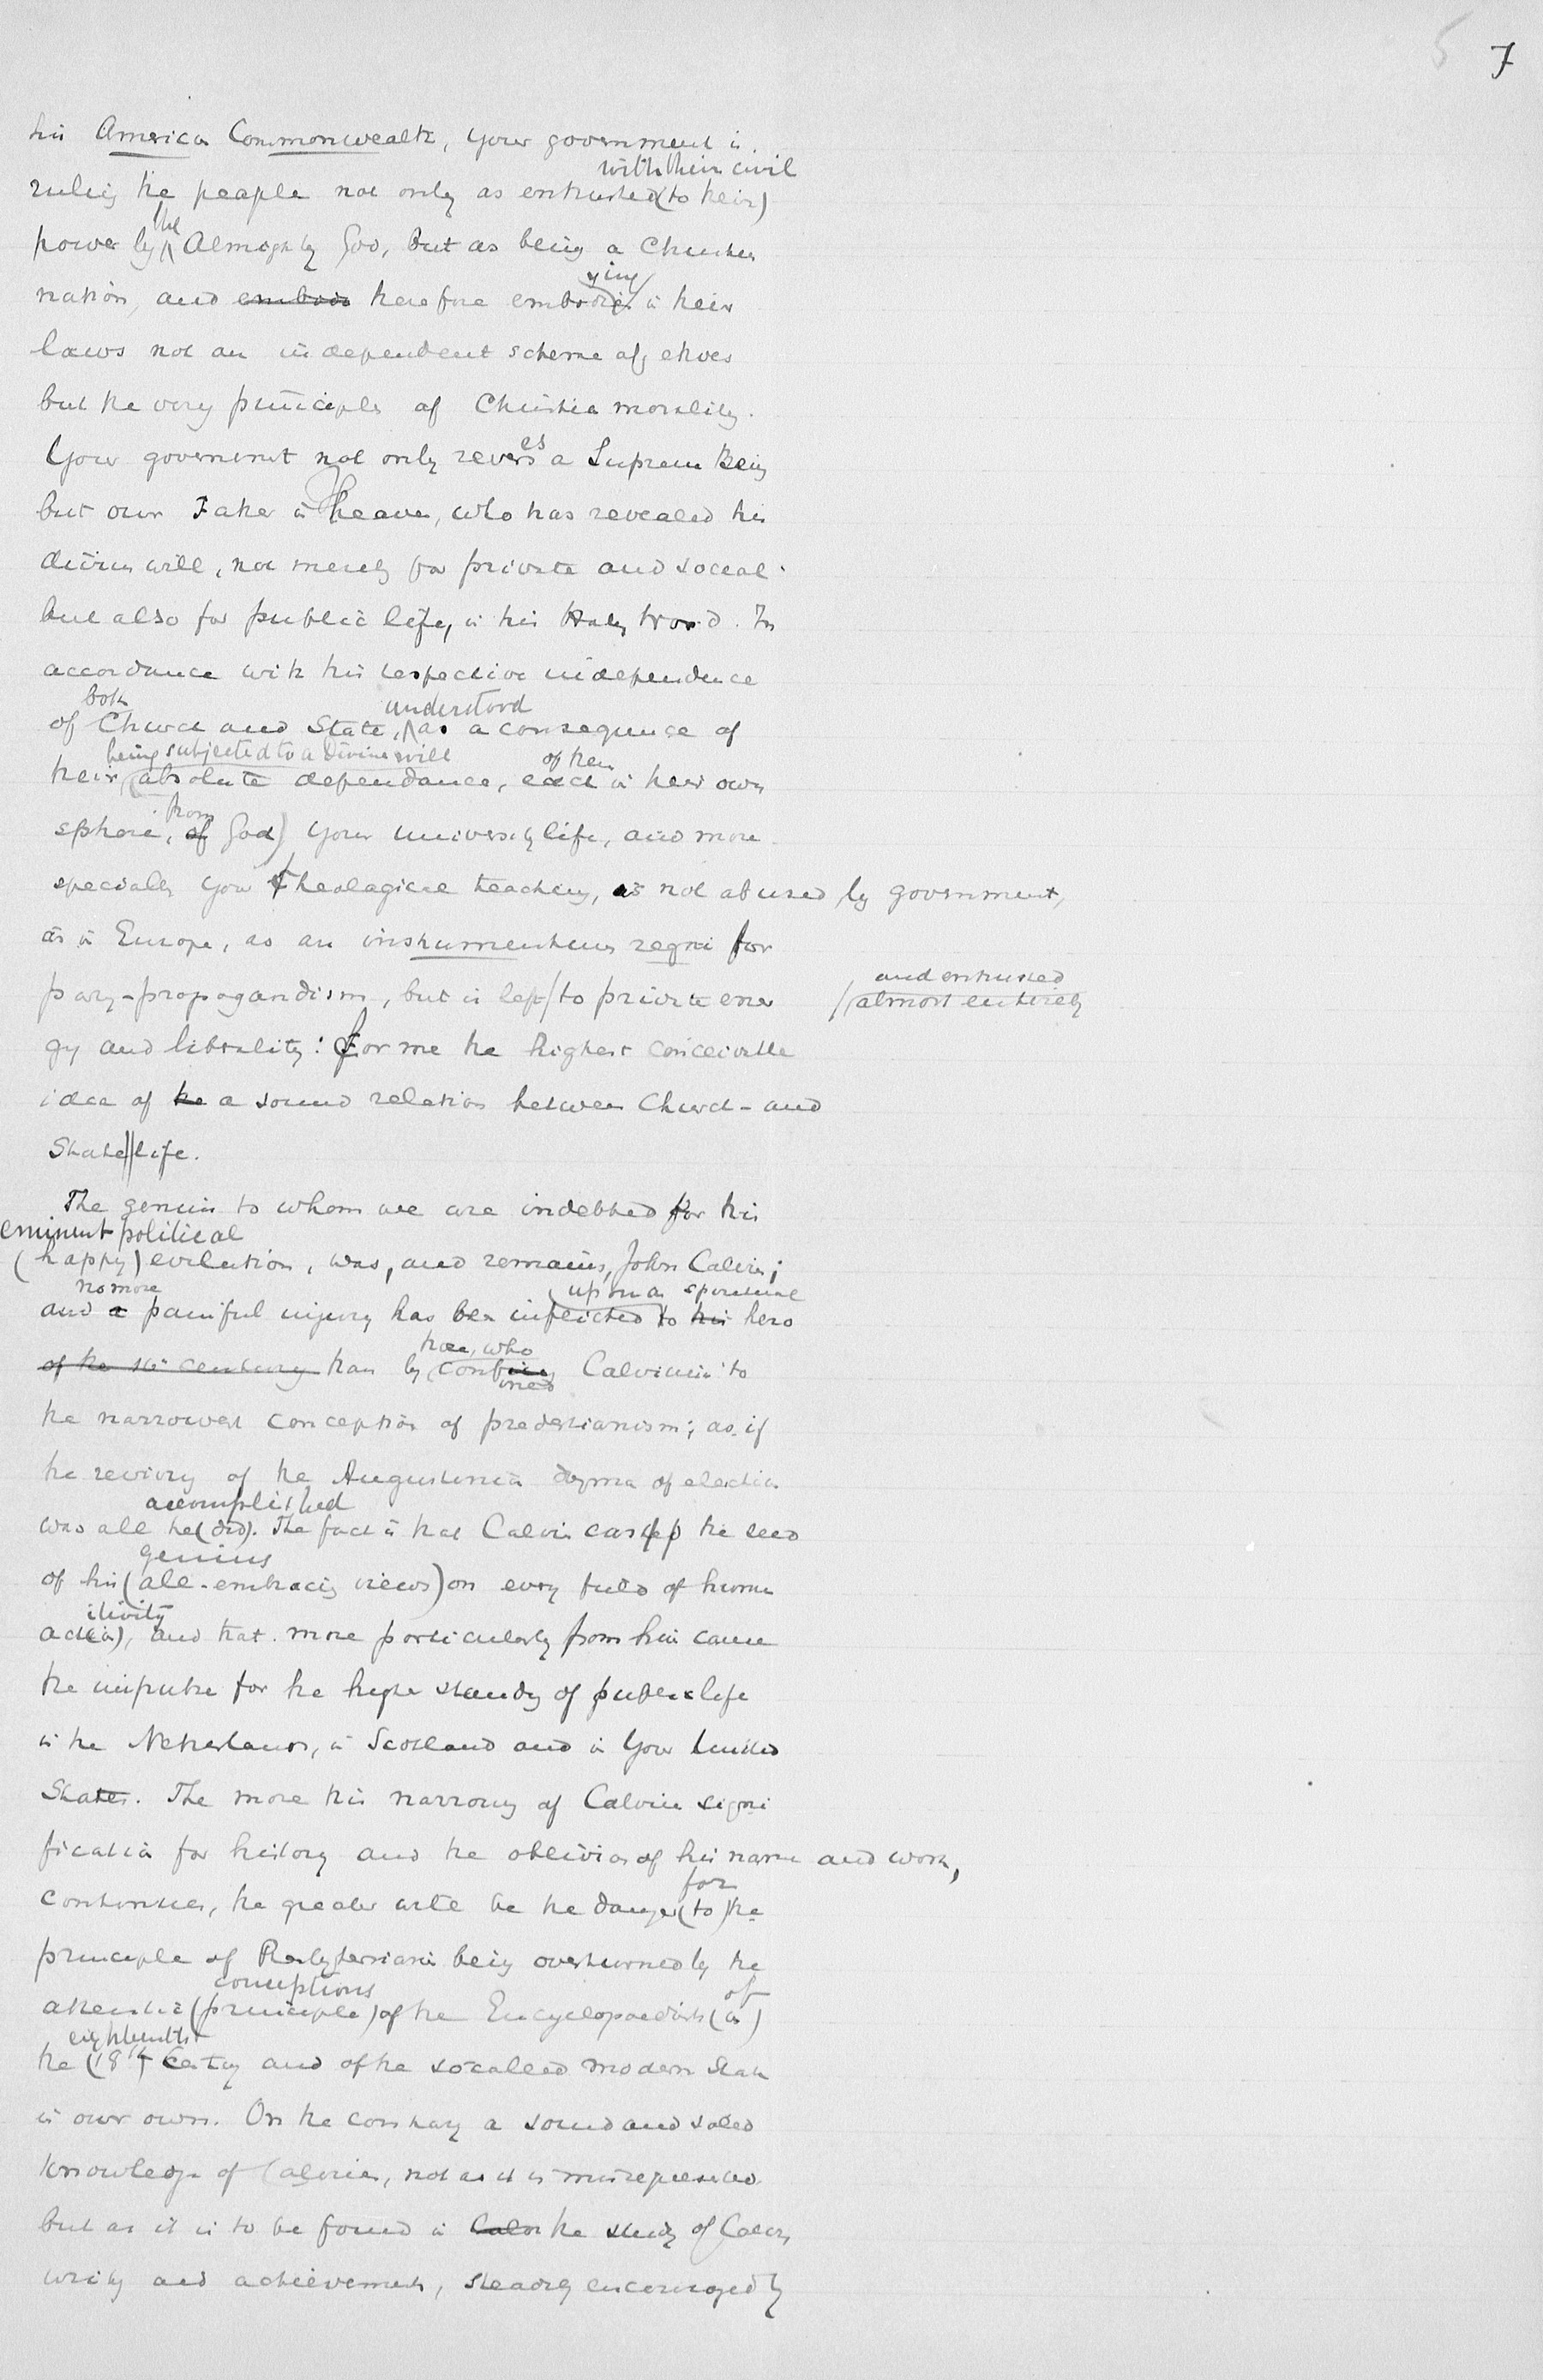 5 7
his American Commonwealth, your government is
with their civil
ruling the people not only as entrusted (to their)
the
power by Almighty God, but as being a Christian
ying
nation, and embodi therefore embodies in their
laws not an independent scheme of ethics
but the very principles of Christian morality.
es
Your government not only revers a Supreme Being
but our Father in heaven, who has revealed his
divine will, not merely for private and social
but also for public life, in his Holy Word. In
accordance with this respective independence
both understood
of Church and State, as a consequence of
being subjected to a Divine will of them
their (absolute dependance, each in their own
from
sphere, of God) your university life, and more
specially your theological teaching, is not abused by government,
as in Europe, as an instrumentum regni for
and entrusted
party-propagandism, but is left/to private ener /(almost entirely
gy and liberality: for me the highest conceivable
idea of the a sound relation between Church- and
State||life.
The genius to whom we are indebted for this
eminent political
(happy) evolution, was, and remains, John Calvin;
no more upon a spiritual
and a painful injury has been inflicted to this hero
those, who
of the 16th century than by (confining Calvinism to
ined
the narrower conception of predestianism; as if
the reviving of the Augustinian dogma of election
accomplished
was all he (did). The fact is that Calvin casted the seed
genius
of his (all-embracing views) on every field of human
tivity
action), and that more particularly from him came
the impulse for the higher standing of public life
in the Netherlands, in Scotland and in Your United
States. The more this narrowing of Calvins signi
fication for history and the oblivion of his name and work,
for
continues, the greater will be the danger (to) the
principle of Presbyterianism being overturned by the
conceptions of
atheistic (principle) of the Encyclopaedists (in)
eighteenth
the (18th Century and of the so called modern State
in our own. On the contrary a sound and solid
knowledge of Calvinism, not as it is misrepresented
but as it is to be found in Calvi the study of Calvins
writing and achievements, steadily encouraged by